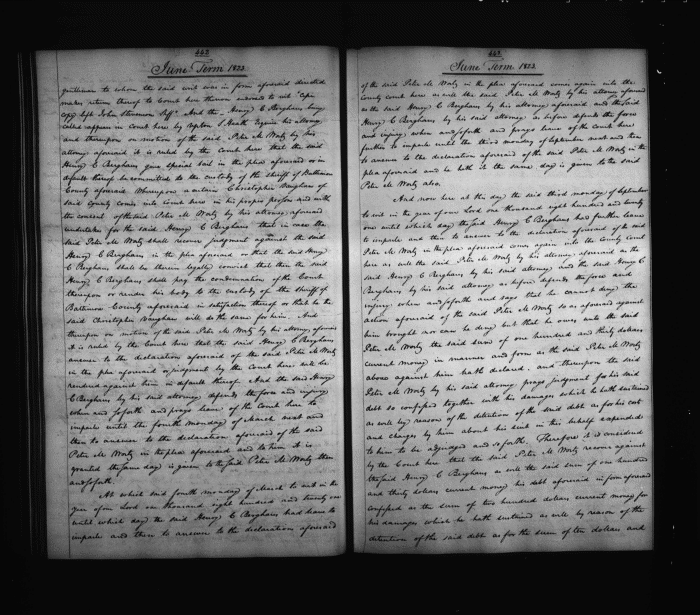 462
June Term 1823
gentleman to whom the said writ was in form aforesaid directed
makes return thereof to Court here thereon endorsed to wit "Cepi
Copy left John Stevenson Shff" And the Henry C Berghaus being
called appears in Court here by Upton S Heath Esquire his attorney
and thereupon on motion of the said Peter M Worty by his
attorney aforesaid it is ruled by the Court here that the said
Henry C Berghaus give special bail in the plea aforesaid or in
default thereof be committed to the custody of the sheriff of Baltimore
County aforesaid Whereupon a certain Christopher Baughan of
said County comes into Court here in his proper person and with
the consent of the said Peter M Worty by his attorney aforesaid
undertakes for the said Henry C Berghaus that in case the
said Peter M Worty shall recover judgment against the said
Henry C Berghaus in the plea aforesaid or that the said Henry
C Berghaus shall be therein legally convict that then the said
Henry C Berghaus shall pay the condemnation of the Court
thereupon or render his body to the custody of the sheriff of
Baltimore County aforesaid in satisfaction thereof or that he the
said Christopher Baughan will do the same for him. And
thereupon on motion of the said Peter M Worty by his attorney aforesaid
it is ruled by the Court here that the said Henry C Berghaus
answer to the declaration aforesaid of the said Peter M Worty
in the plea aforesaid or judgment by the Court here will be
rendered against him in default thereof And the said Henry
C Berghaus by his said attorney defends the force and injury
when and so forth and prays leave of the Court here to
imparle until the fourth monday of March next and
then to answer to the declaration aforesaid of the said
Peter M Worty in the plea aforesaid and to him it is
granted the same day is given to the said Peter M Worty then
and so forth.
At which said fourth monday of March to wit in the
year of our Lord one thousand eight hundred and twenty one
until which day the said Henry C Berghaus had leave to
imparle and then to answer to the declaration aforesaid
463
June Term 1823
of the said Peter M Worty in the plea aforesaid comes again into the
County Court here as well the said Peter M Worty by his attorney aforesaid
as the said Henry C Berghaus by his attorney aforesaid and the said
Henry C Berghaus by his said attorney as before defends the force
and injury when and so forth and prays leave of the Court here
further to imparle until the third monday of September next and then
to answer to the declaration aforesaid of the said Peter M Worty in the
plea aforesaid and he hath it the same day is given to the said
Peter M Worty also.
And now here at this day the said third monday of September
to wit in the year of our Lord one thousand eight hundred and twenty
one until which day the said Henry C Berghaus had further leave
to imparle and then to answer to the declaration aforesaid of the said
Peter M Worty in the plea aforesaid comes again into the County Court
here as well the said Peter M Worty by his attorney aforesaid as the
said Henry C Berghaus by his said attorney and the said Henry C
Berghaus by his said attorney as before defends the force and
injury when and so forth and says that he cannot deny the
action aforesaid of the said Peter M Worty so as aforesaid against
him brought nor can he deny but that he owes unto the said
Peter M Worty the said sum of one hundred and thirty dollars
current money in manner and form as the said Peter M Worty
above against him hath declared. and thereupon the said
Peter M Worty by his said attorney prays judgment for his said
debt so confessed together with his damages which he hath sustained
as well by reason of the detention of the said debt as for his costs
and charges by him about his suit in this behalf expended
to him to be adjudged and so forth. Therefore it is considered
by the Court here that the said Peter M Worty recover against
the said Henry C Berghaus as well the said sum of one hundred
and thirty dollars current money his debt aforesaid in form aforesaid
confessed as the sum of two hundred dollars current money for
his damages which he hath sustained as well by reason of the
detention of the said debt as for the sum of ten dollars and